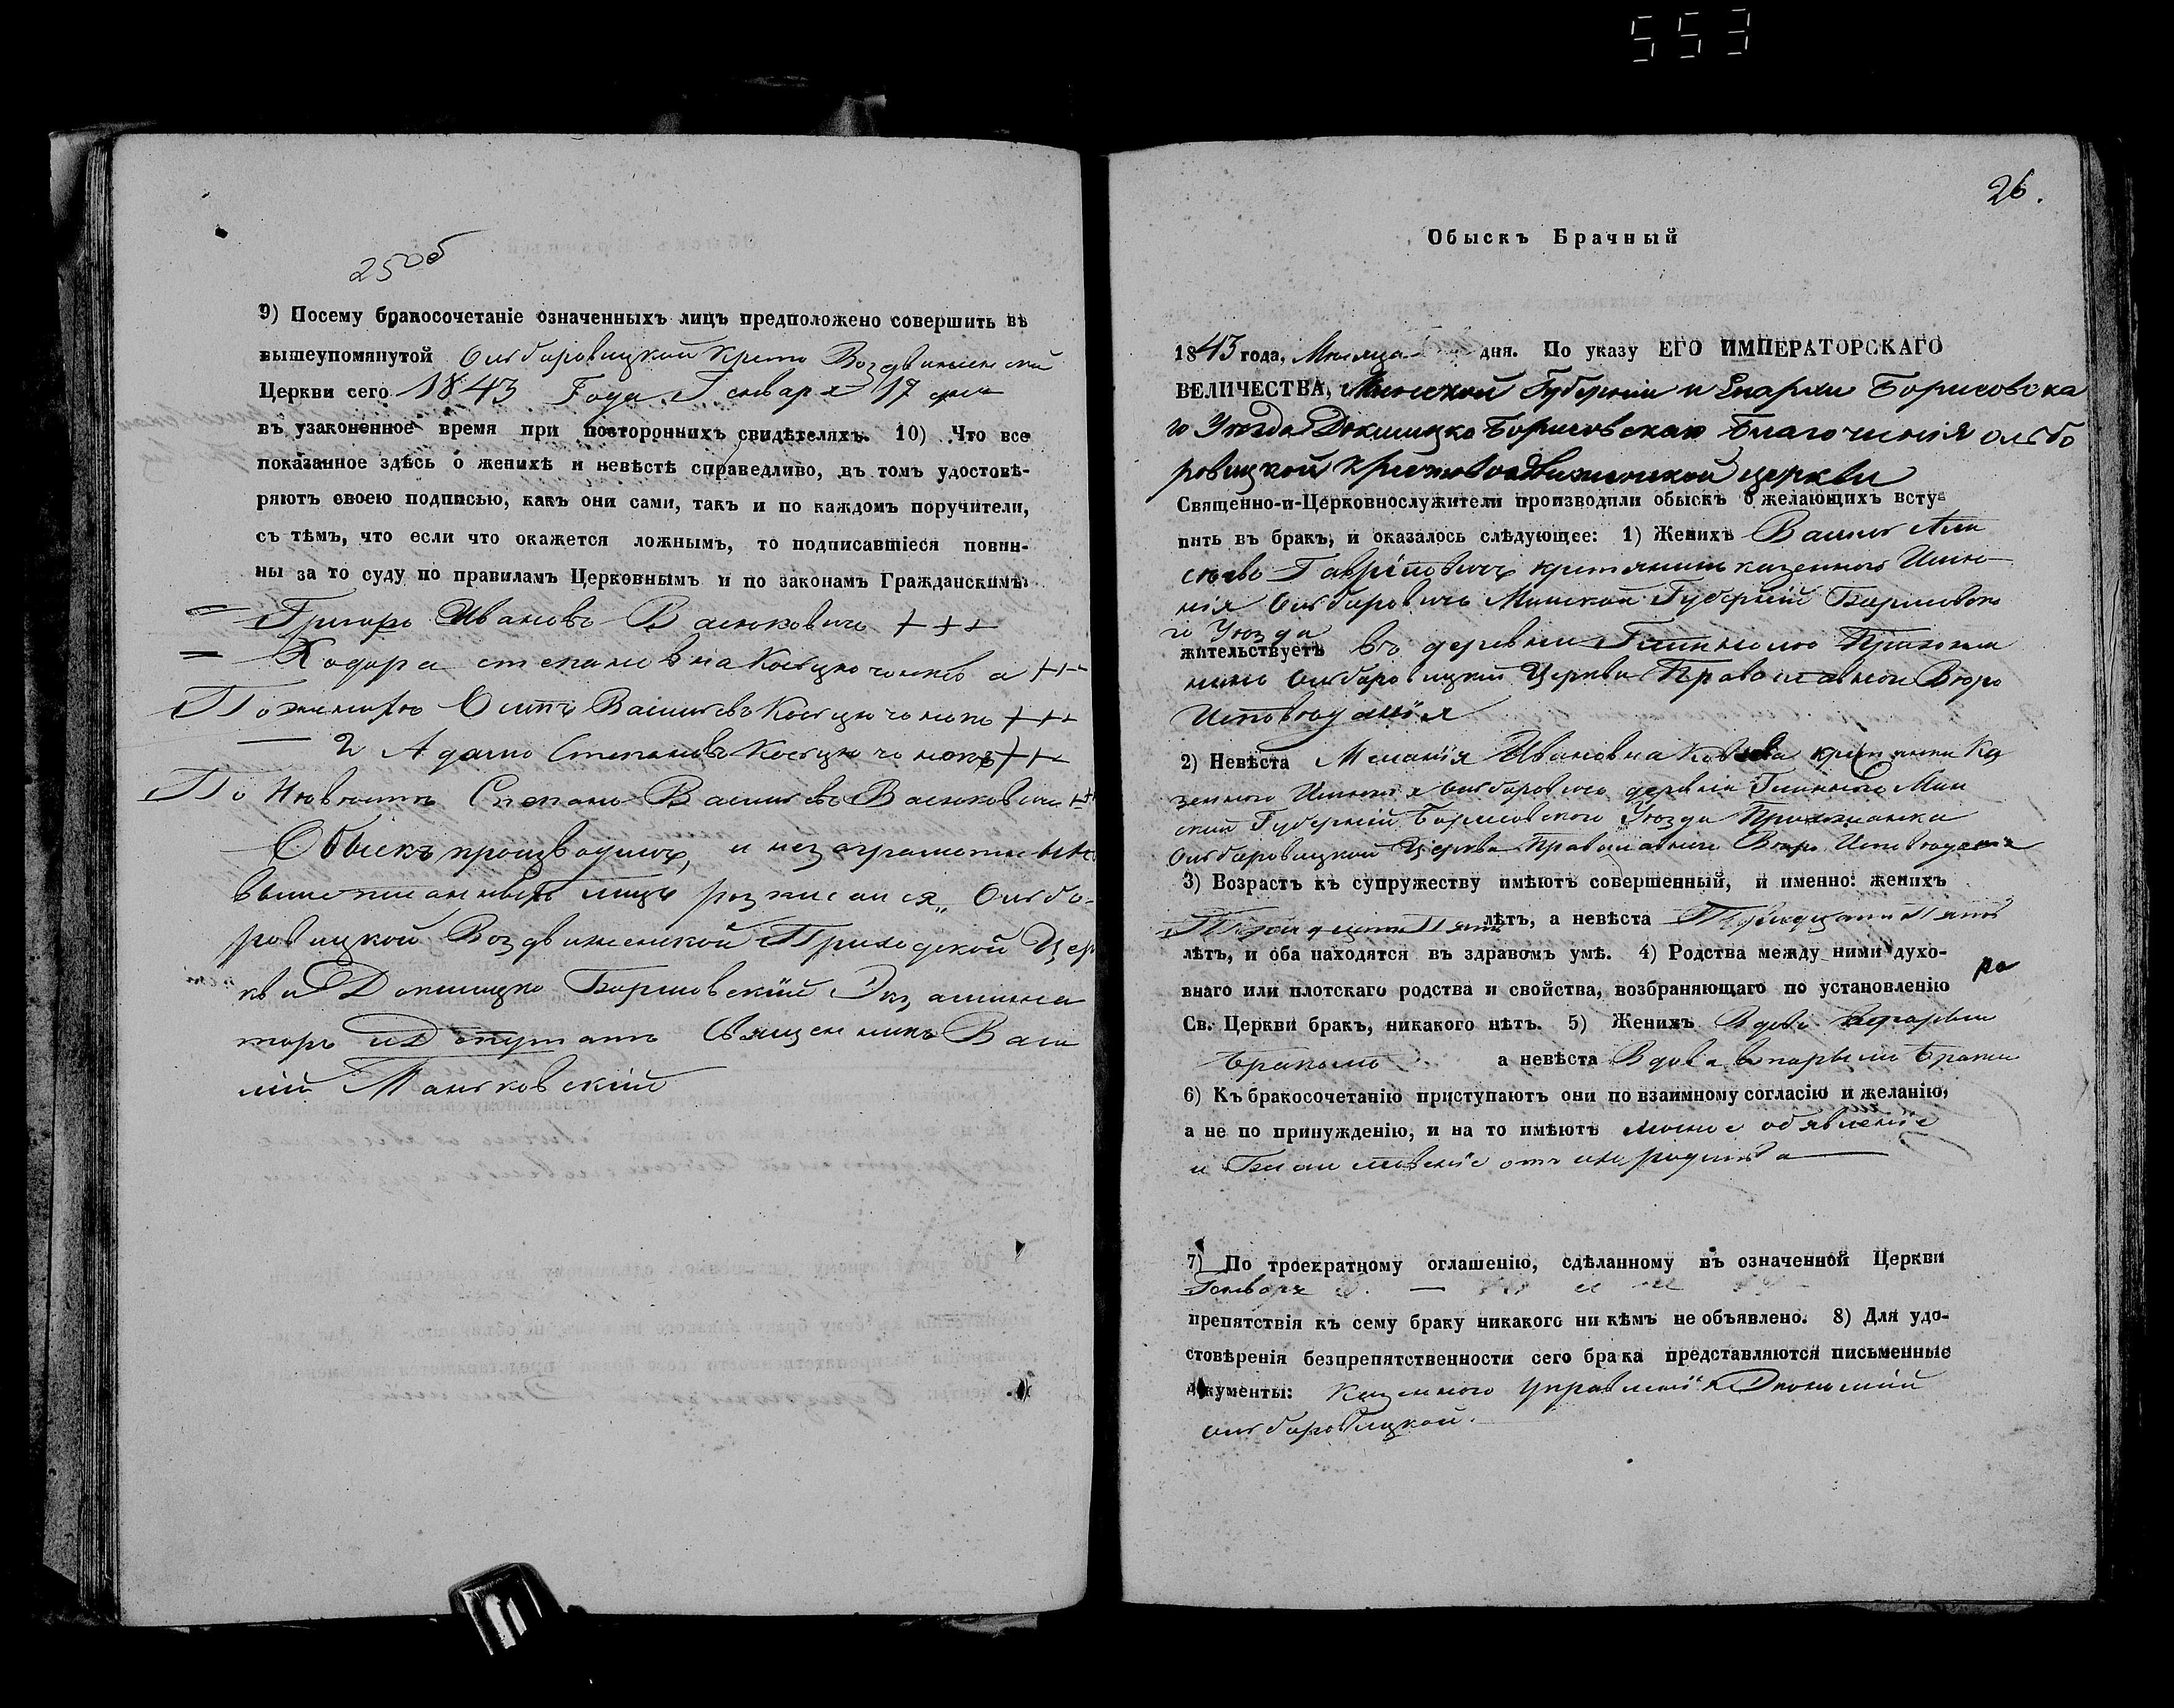 553
25об
9) Посему бракосочетаніе означенныхъ лицъ предположено совершить въ
вышеупомянутой Ольборовицкой Кресто Воздвиженской
Церкви сего 1843 Года Генваря 17 дня
въ узаконенное время при постороннихъ свидѣтеляхъ. 10) Что все
показанное здѣсь о женихѣ и невѣстѣ справедливо, въ томъ удостовѣ-
ряютъ своею подписью, какъ они сами, такъ и по каждомъ поручители,
съ тѣмъ, что если что окажется ложнымъ, то подписавшіеся повин-
ны за то суду по правиламъ Церковнымъ и по законамъ Гражданскимъ.
= Григоръ Ивановъ Васюковичъ +++
= Ходора степановна +++
По женихѣ Осипъ Васильевъ +++
И Адамъ Степановъ +++
По Невѣстѣ Степанъ Васильевъ Васюковичъ +++
Обыскъ производилъ, и незаграмотныхъ
вышеписанныхъ лицъ розписался Ольбо-
ровицкой Воздвиженской Приходской Цер
кви Докшицко Борисовскій Экзамина
торъ и Депутатъ Священникъ Васи
лій Маньковскій
26.
Обыскъ Брачный
1843 года, Мѣсяца дня. По указу ЕГО ИМПЕРАТОРСКАГО
ВЕЛИЧЕСТВА, Минской Губерніи и Епархіи Борисовска
го Уѣзда Докшицко Борисовскаго Благочинія Ольбо
ровицкой Крестовоздвиженской церкви
Священно-и-Церковнослужители производили обыскъ о желающихъ всту-
пить въ бракъ, и оказалось слѣдующее: 1) Женихъ
крестьянинъ казеннаго Имѣ-
нія Ольборовичъ Минской Губерніи Борисовска
го Уѣзда
жительствуетъ въ деревни Прихожа
нинъ Ольборовицкой Церкви Православной Вѣро
Исповѣданія
2) Невѣста Меланія Ивановна крестьянка Ка
зеннаго Имѣнія Ольборовичъ деревни Мин
ской Губерніи Борисовскаго Уѣзда Прихожанка
Ольборовицкой Церкви Православнаго Вѣро Исповѣданія
3) Возрастъ къ супружеству имѣютъ совершенный, и именно: женихъ
Тридцати Пяти лѣтъ, а невѣста Тридцати Пяти
лѣтъ, и оба находятся въ здравомъ умѣ. 4) Родства между ними духо-
внаго или плотскаго родства и свойства, возбраняющаго по установленію
Св. Церкви бракъ, никакого нѣтъ. 5) Женихъ Вдовъ
бракомъ а невѣста Вдова первымъ браком
6) Къ бракосочетанію приступаютъ они по взаимному согласію и желанію,
а не по принужденію, и на то имѣютъ объявленіе
и Благословеніе отъ ихъ родства
7) По троекратному оглашенію, сдѣланному въ означенной Церкви
Генваря
препятствія къ сему браку никакого ни кѣмъ не объявлено. 8) Для удо-
стовѣренія безпрепятственности сего брака представляются письменные
документы: Казеннаго Управленія Экономіи
Ольборовицкой.